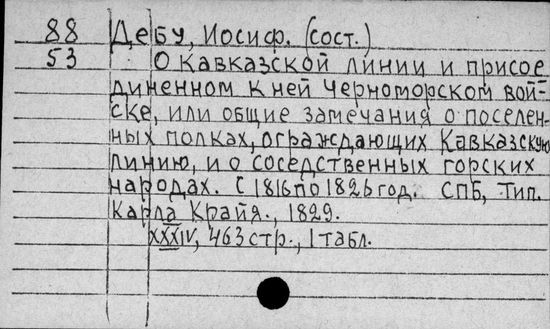 88 Дебу, Иосиф. (сост.)
53 О Кавказской линии и присое
диненном к ней Черноморском вой-
ске, или общие замечания о поселен-
ных полках, ограждающих Кавказскую
линию, и о соседственных горских
народах. С 1816 по 1826 год. СПБ, Тип.
Карла Крайя., 1829.
XXXIV, 463 стр., 1 табл.